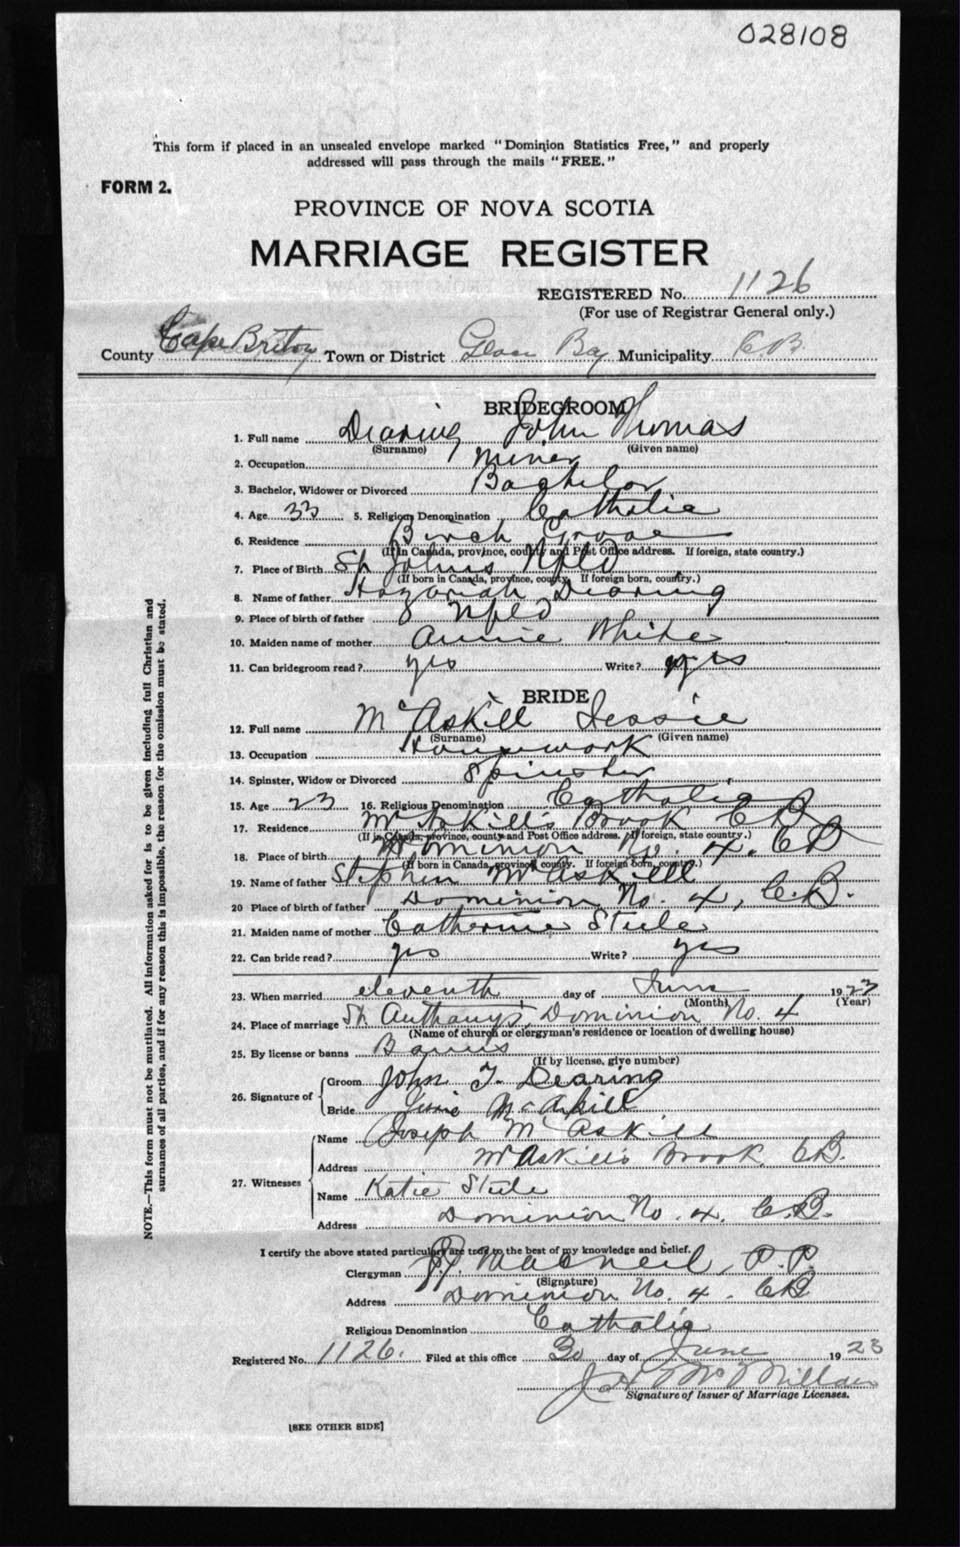 028108
This form if placed in an unsealed envelope marked "Dominion Statistics Free," and properly
addressed will pass through the mails "FREE."
FORM 2.
PROVINCE OF NOVA SCOTIA
MARRIAGE REGISTER
REGISTERED No. 1126
(For use of Registrar General only.)
County Cape Breton Town or District Glace Bay Municipality C.B.
BRIDEGROOM
1. Full name Dearing John Thomas
(Surname) (Given name)
2. Occupation Miner
3. Bachelor, Widower or Divorced Bachelor
4. Age 33 5. Religious Denomination Catholic
6. Residence Birch Grove
(If in Canada, province, county and Post Office address. If foreign, state country.)
7. Place of Birth St Johns Nfld
(If born in Canada, province, county. If foreign born, country.)
8. Name of father Dearing
9. Place of birth of father Nfld
10. Maiden name of mother Annie White
11. Can bridegroom read? yes Write? yes
BRIDE
12. Full name McAskill Jessie
(Surname) (Given name)
13. Occupation Housework
14. Spinster, Widow or Divorced Spinster
15. Age 23 16. Religious Denomination Catholic
17. Residence McAskill's Brook CB
(If in Canada, province, county and Post Office address. If foreign, state country.)
18. Place of birth Dominion No. 4. CB
(If born in Canada, province, county. If foreign born, country.)
19. Name of father Stephen McAskill
20 Place of birth of father Dominion No. 4, C.B.
21. Maiden name of mother Catherine Steele
22. Can bride read? yes Write? yes
23. When married eleventh day of June 1923
(Month) (Year)
24. Place of marriage St Anthony's, Dominion No. 4
(Name of church or clergyman's residence or location of dwelling house)
25. By license or banns Banns
(If by license, give number)
26. Signature of Groom John T. Dearing
Bride Jessie McAskill
27. Witnesses Name Joseph McAskill
Address McAskill's Brook, CB.
Name Katie Steele
Address Dominion No. 4. C.B.
I certify the above stated particulars are true to the best of my knowledge and belief.
Clergyman MacNeil, P.P.
(Signature)
Address Dominion No. 4. CB
Religious Denomination Catholic
Registered No. 1126. Filed at this office 30 day of June 1923
McMillan
Signature of Issuer of Marriage Licenses.
[SEE OTHER SIDE]
NOTE.—This form must not be mutilated. All information asked for is to be given including full Christian and
surnames of all parties, and if for any reason this is impossible, the reason for the omission must be stated.